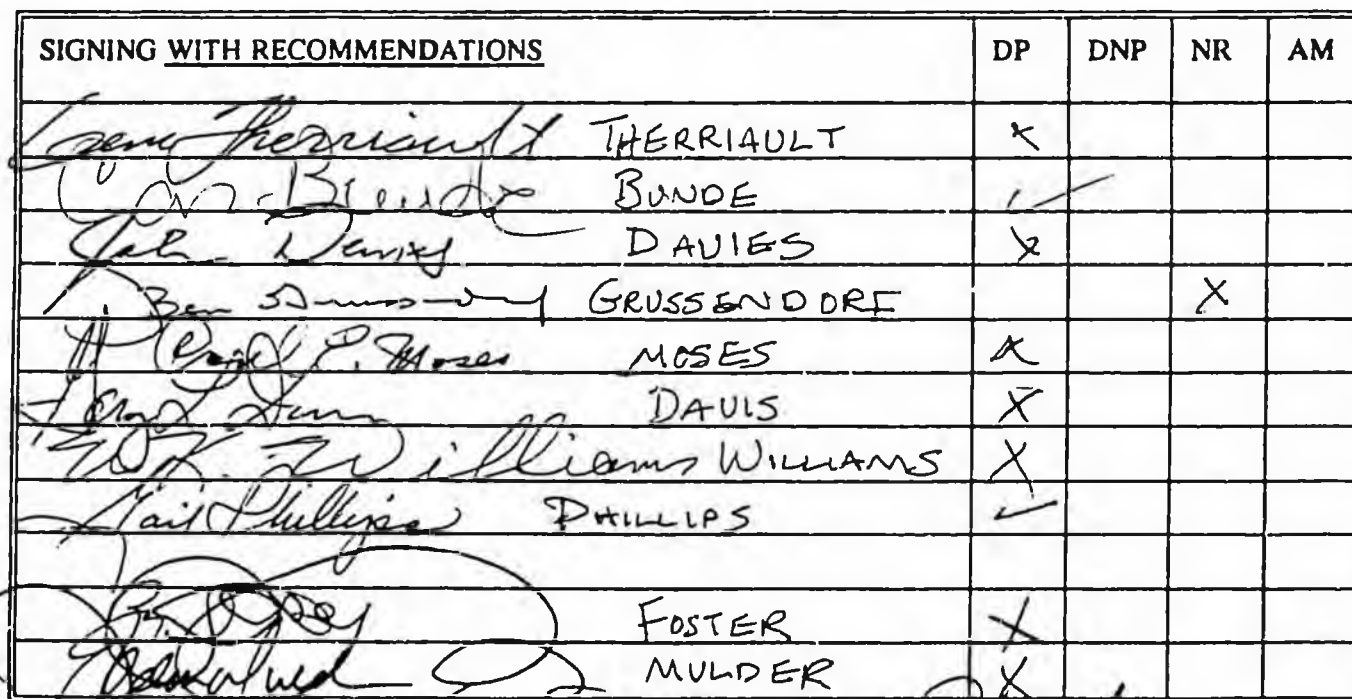 SIGNING WITH RECOMMENDATIONS DP DNP NR AM
Gene Therriault THERRIAULT X
Con Bunde BUNDE ✓
John Davies DAVIES X
Ben GRUSSENDORF X
Carl E. Moses MOSES X
DAVIS X
W.K. Williams WILLIAMS X
Gail Phillips PHILLIPS ✓
FOSTER X
MULDER X